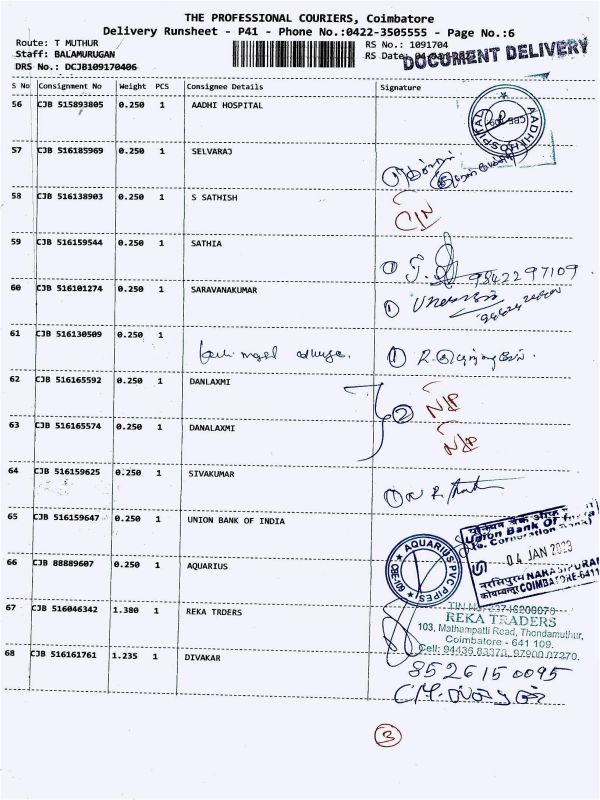 THE PROFESSIONAL COURIERS, Coimbatore
Delivery Runsheet - P41 - Phone No.:0422-3505555 - Page No.:6
Route: T MUTHUR
Staff: BALAMURUGAN
DRS No.: DCJB109170406
RS No.: 1091704
RS Date:
DOCUMENT DELIVERY
S No Consignment No Weight PCS Consignee Details Signature
56 CJB 515893805 0.250 1 AADHI HOSPITAL
AADHI HOSPITAL
57 CJB 516185969 0.250 1 SELVARAJ
58 CJB 516138903 0.250 1 S SATHISH
59 CJB 516159544 0.250 1 SATHIA
9842297109
60 CJB 516101274 0.250 1 SARAVANAKUMAR
61 CJB 516130509 0.250 1
62 CJB 516165592 0.250 1 DANLAXMI
2
63 CJB 516165574 0.250 1 DANALAXMI
64 CJB 516159625 0.250 1 SIVAKUMAR
65 CJB 516159647 0.250 1 UNION BANK OF INDIA
Union Bank Of India
04 JAN 2023
66 CJB 88889607 0.250 1 AQUARIUS
AQUARIUS PVC PIPES
67 CJB 516046342 1.380 1 REKA TRDERS
REKA TRADERS
103, Mathampatti Road, Thondamuthur,
Coimbatore - 641 109.
68 CJB 516161761 1.235 1 DIVAKAR
8526150095
3